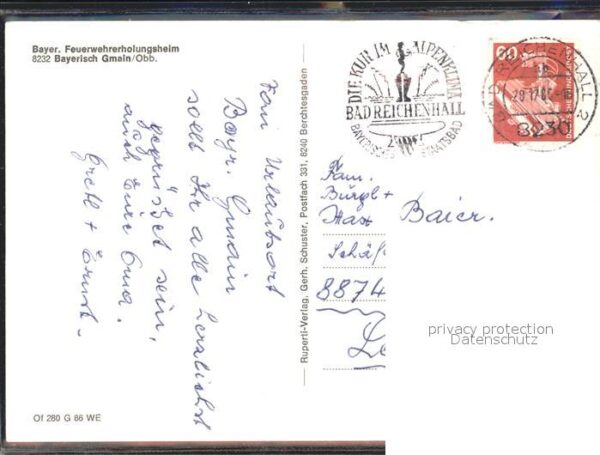 Bayer. Feuerwehrerholungsheim
8232 Bayerisch Gmain/Obb.
Urlaubsort
Bayr. Gmain
sollt Ihr alle herzlichst
gegrüßt sein,
auch Eure Oma.
Gretl + Ernst.
Of 280 G 86 WE
Ruperti-Verlag, Gerh. Schuster, Postfach 331, 8240 Berchtesgaden
DIE KUR IM ALPENKLIMA
BAD REICHENHALL
BAYERISCHES STAATSBAD
60
DEUTSCHE BUNDESPOST
BAD REICHENHALL 2
8230
Fam.
Burgl +
Max Baier.
Schäf
8874
privacy protection
Datenschutz